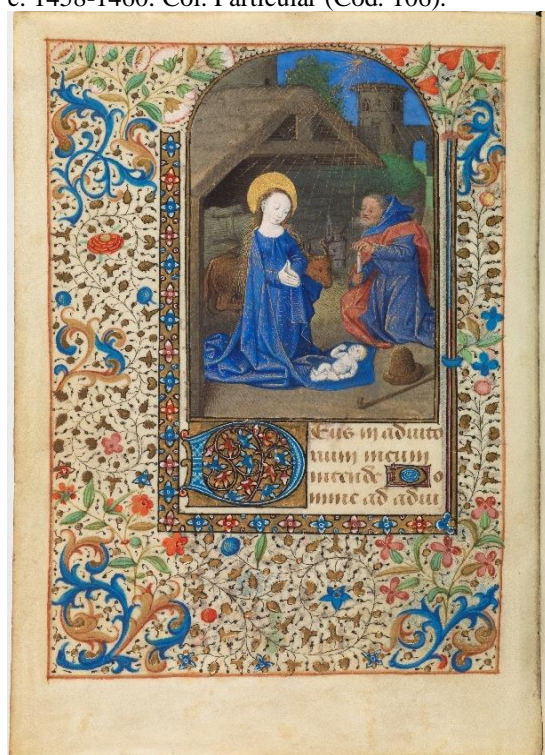 c. 1458-1460. Col. Particular (Cód. 106).
DEus in adiuto
rium meum
intende Do
mine ad adiu